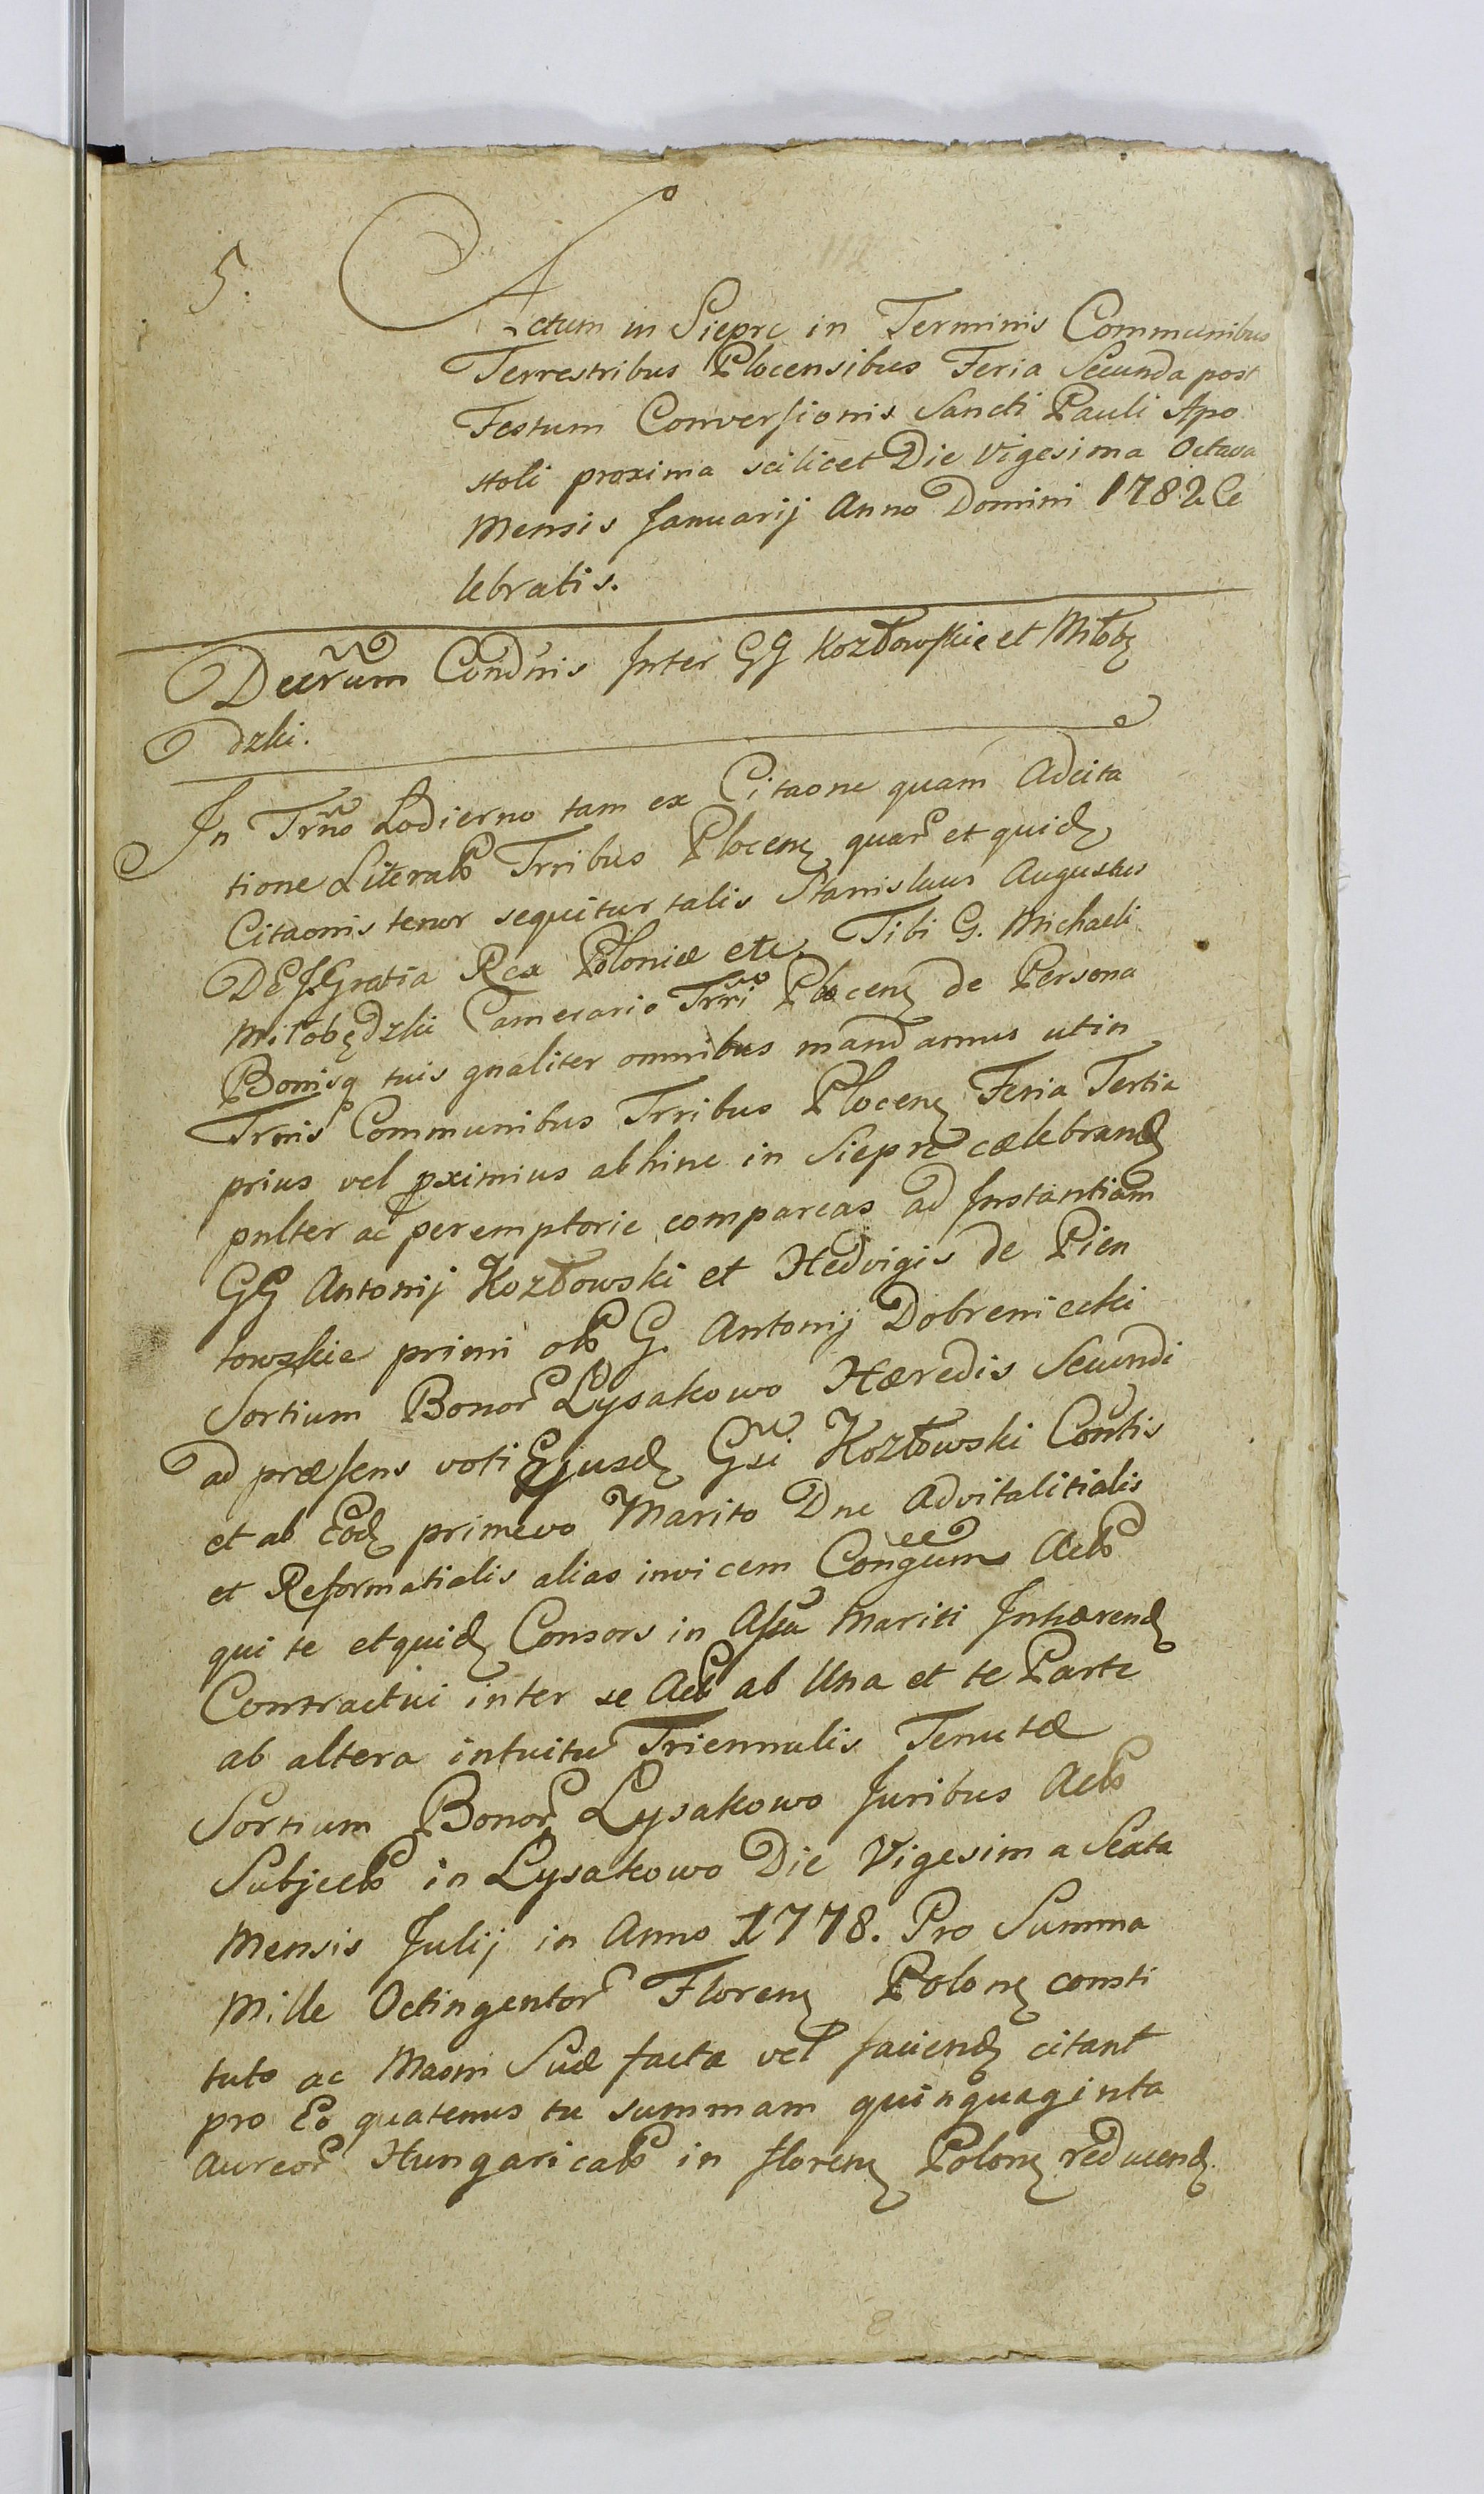 5.
Actum in Siepre in Terminis Communibus
Terrestribus Plocensibus Feria Secunda post
Festum Conversionis Sancti Pauli Apo
stoli proxima scilicet Die Vigesima Octava
Mensis Januarij Anno Domini 1782 Ce
lebratis.
Decrum Condnis Inter GG Kozłowskie et Miłobę
dzki.
In Trno hodierno tam ex Citaone quam Adcita
tione Literali Trribus Plocen quar et quid
Citaonis tenor sequitur talis Stanislaus Augustus
DEI Gratia Rex Poloniæ etc. Tibi G. Michaeli
Miłobędzki Camerario Trri Plocen de Persona
Bonisq tuis gnaliter omnibus mandamus utin
Trnis Communibus Trribus Plocen Feria Tertia
prius vel pximius abhinc in Siepre cælebrand
pnlter ac peremptorie compareas ad Instantiam
GG Antonij Kozłowski et Hedvigis de Pien
towskie primi olim G. Antonij Dobreniecki
Sortium Bonor Lysakowo Hæredis Secundi
ad præsens voti Ejusd Gsi Kozłowski Contis
et ab Eod primevo Marito Dne Advitalitialis
et Reformatialis alias invicem Congum Act
qui te et quid Consors in Assa Mariti Inhærend
Contractui inter se Act ab Una et te Parte
ab altera intuitu Triennalis Tenutæ
Sortium Bonor Lysakowo Juribus Act
Subject in Lysakowo Die Vigesima Sexta
Mensis Julij in Anno 1778. Pro Summa
Mille Octingentor Floren Polon consti
tuto ac Maoni Suæ facta vel faciend citant
pro Eo quatenus tu summam quinquaginta
Aureor Hungarical in floren Polon reducend.
8